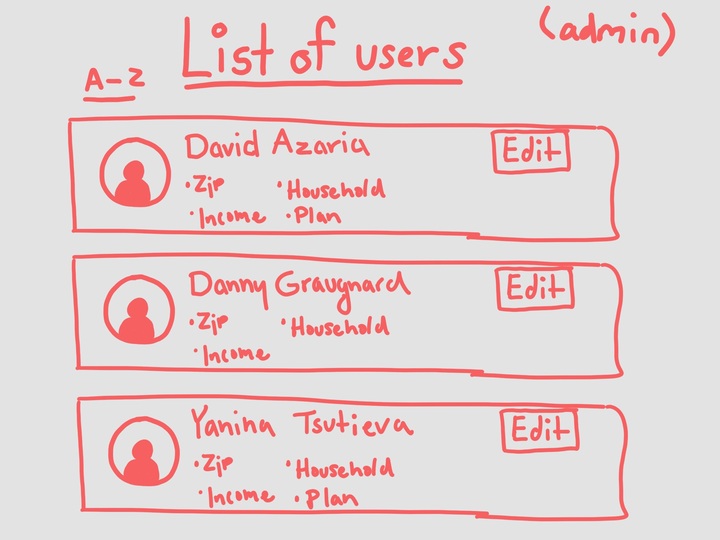 (admin)
List of users
A-Z
David Azaria Edit
• Zip • Household
• Income • Plan
Danny Graugnard Edit
• Zip • Household
• Income
Yanina Tsutieva Edit
• Zip • Household
• Income • Plan